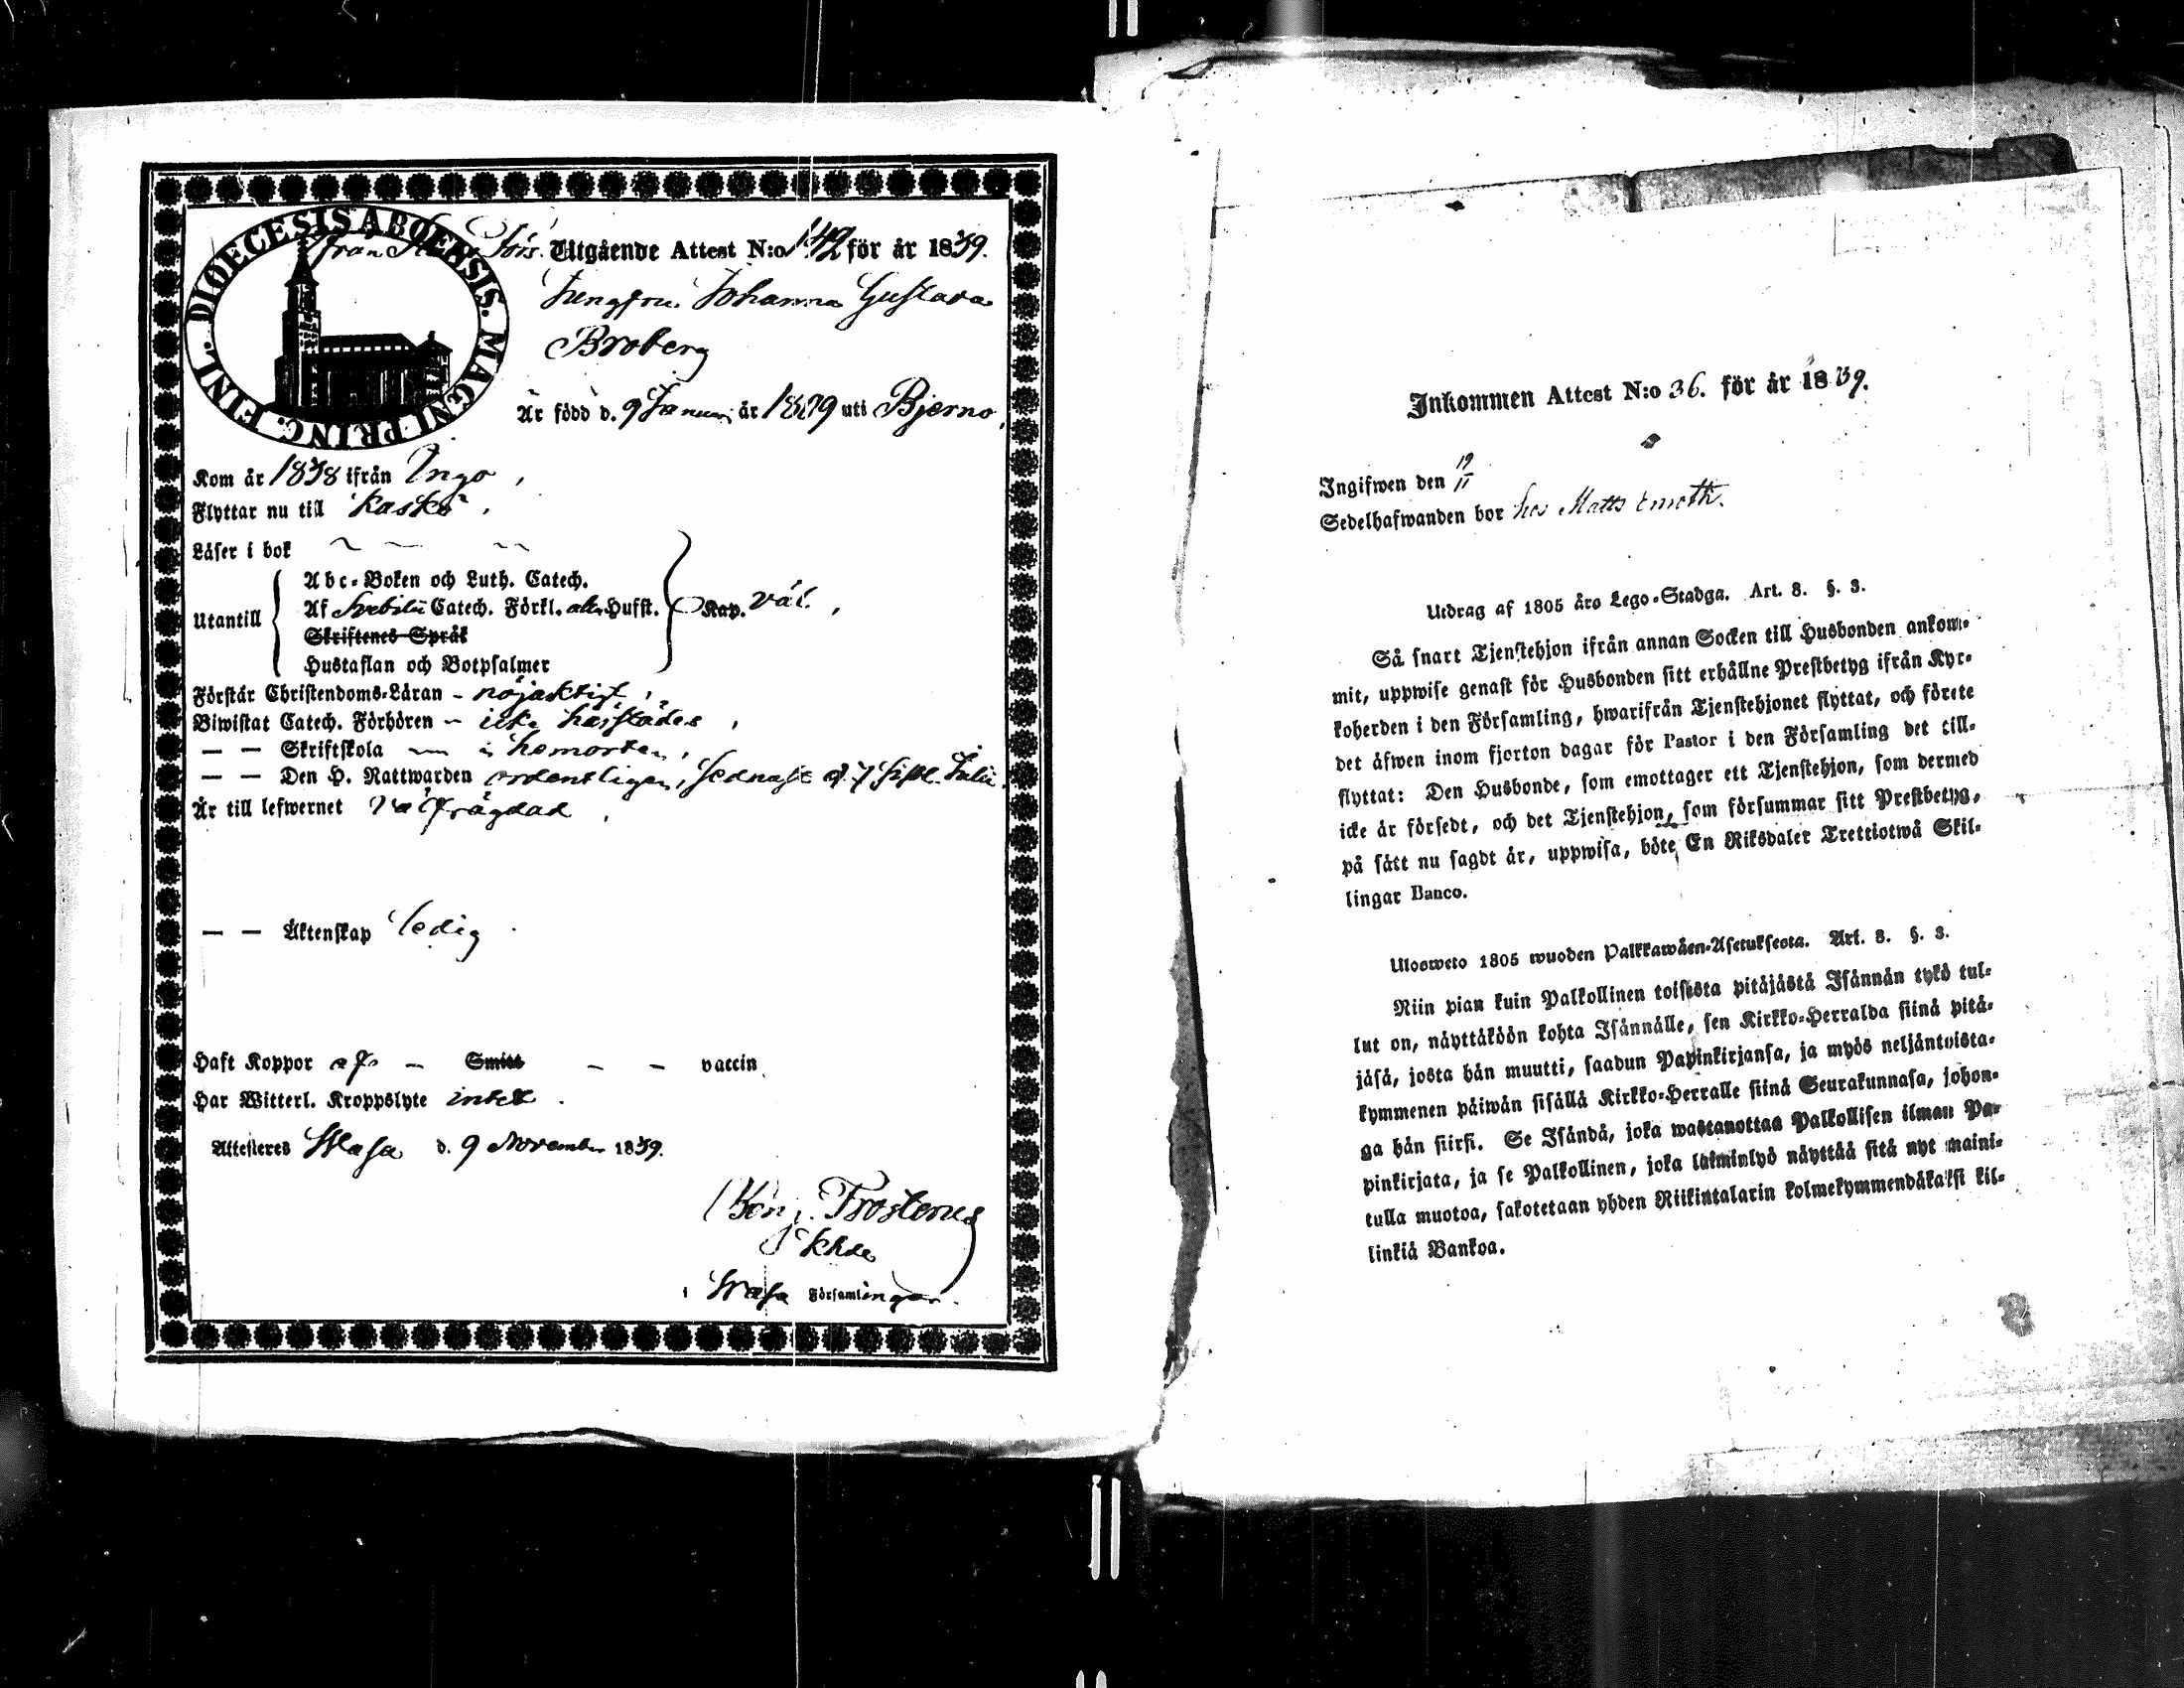 DIOECESIS ABOENSIS. MAGNI PRINC. FINL.
från Förs. Utgående Attest N:o 142 för år 1839.
Jungfru Johanna Gustava
Broberg
Är född d. 9 Januari år 1809 uti Bjerno,
Kom år 1838 ifrån Ingo,
Flyttar nu till Kaskö,
Läser i bok
Abc-Boken och Luth. Catech.
Utantill Af Svebilii Catech. Förkl. Hufst. Kap. väl,
Skriftenes Språk
Hustaflan och Botpsalmer
Förstår Christendoms-Läran - nöjaktigt,
Biwistat Catech. Förhören - icke härstädes,
— — Skriftskola i hemorten,
— — Den H. Nattwarden ordentligen, sednast d. 7 sistl. Julii.
Är till lefwernet välfrägdad,
— — Äktenskap ledig.
Haft Koppor af - Smitt - - vaccin
Har Witterl. Kroppslyte intet.
Attesteres Wasa d. 9 November 1839.
Benj. Frosterus
Khde
i Wasa Församlingar.
Inkommen Attest N:o 36. för år 1839.
Ingifwen den 19/11
Sedelhafwanden bor hos Matts Smeth.
Utdrag af 1805 års Lego-Stadga. Art. 8. §. 3.
Så snart Tjenstehjon ifrån annan Socken till Husbonden ankom-
mit, uppwise genast för Husbonden sitt erhållne Prestbetyg ifrån Kyr-
koherden i den Församling, hwarifrån Tjenstehjonet flyttat, och förete
det äfwen inom fjorton dagar för Pastor i den Församling det till-
flyttat: Den Husbonde, som emottager ett Tjenstehjon, som dermed
icke är försedt, och det Tjenstehjon, som försummar sitt Prestbetyg,
på sätt nu sagdt är, uppwisa, böte En Riksdaler Trettiotwå Skil-
lingar Banco.
Ulosweto 1805 wuoden Palkkawäen-Asetuksesta. Art. 8. §. 3.
Niin pian kuin Palkollinen toisesta pitäjästä Isännän tykö tul-
lut on, näyttäköön kohta Isännälle, sen Kirkko-Herralda siinä pitä-
jäsä, josta hän muutti, saadun Papinkirjansa, ja myös neljäntoista-
kymmenen päiwän sisällä Kirkko-Herralle siinä Seurakunnasa, johon-
ga hän siirsi. Se Isändä, joka wastanottaa Palkollisen ilman Pa-
pinkirjata, ja se Palkollinen, joka laiminlyö näyttää sitä nyt maini-
tulla muotoa, sakotetaan yhden Riikintalarin kolmekymmendäkaksi kil-
linkiä Bankoa.